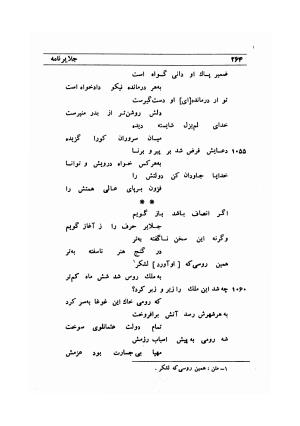 ۲۶۴ جلایرنامه
ضمیر پاک او دانی گواه است
به‌هر درمانده نیکو دادخواه است
تو ار درمانده[ای] او دست‌گیرست
دلش روشن‌تر از بدر منیرست
خدای لم‌یزل شایسته دیده
میان سروران کورا گزیده
۱۰۵۵ دعایش فرض شد بر پیر و برنا
به‌هرکس خواه درویش و توانا
خدایا جاودان کن دولتش را
فزون برپای عالی همتش را
* *
اگر انصاف باشد باز گویم
جلایر حرف را ز آغاز گویم
وگرنه این سخن ناگفته به‌تر
در گنج هنر ناسفته به‌تر
همین روسی‌که [او‌آورد] لشکر۱
به‌ملك روس شد شش ماه کم‌تر
۱۰۶۰ چه شد این ملك را زیر و زبر کرد؟
که رومی خاك این غوغا به‌سر کرد
به‌هرشهرش رسد آتش برافروخت
تمام دولت عثمانلوی سوخت
شه رومی به پیش اسباب رزمش
مهیا بی‌جسارت بود عزمش
۱ــ متن : همین روسی‌که لشکر .